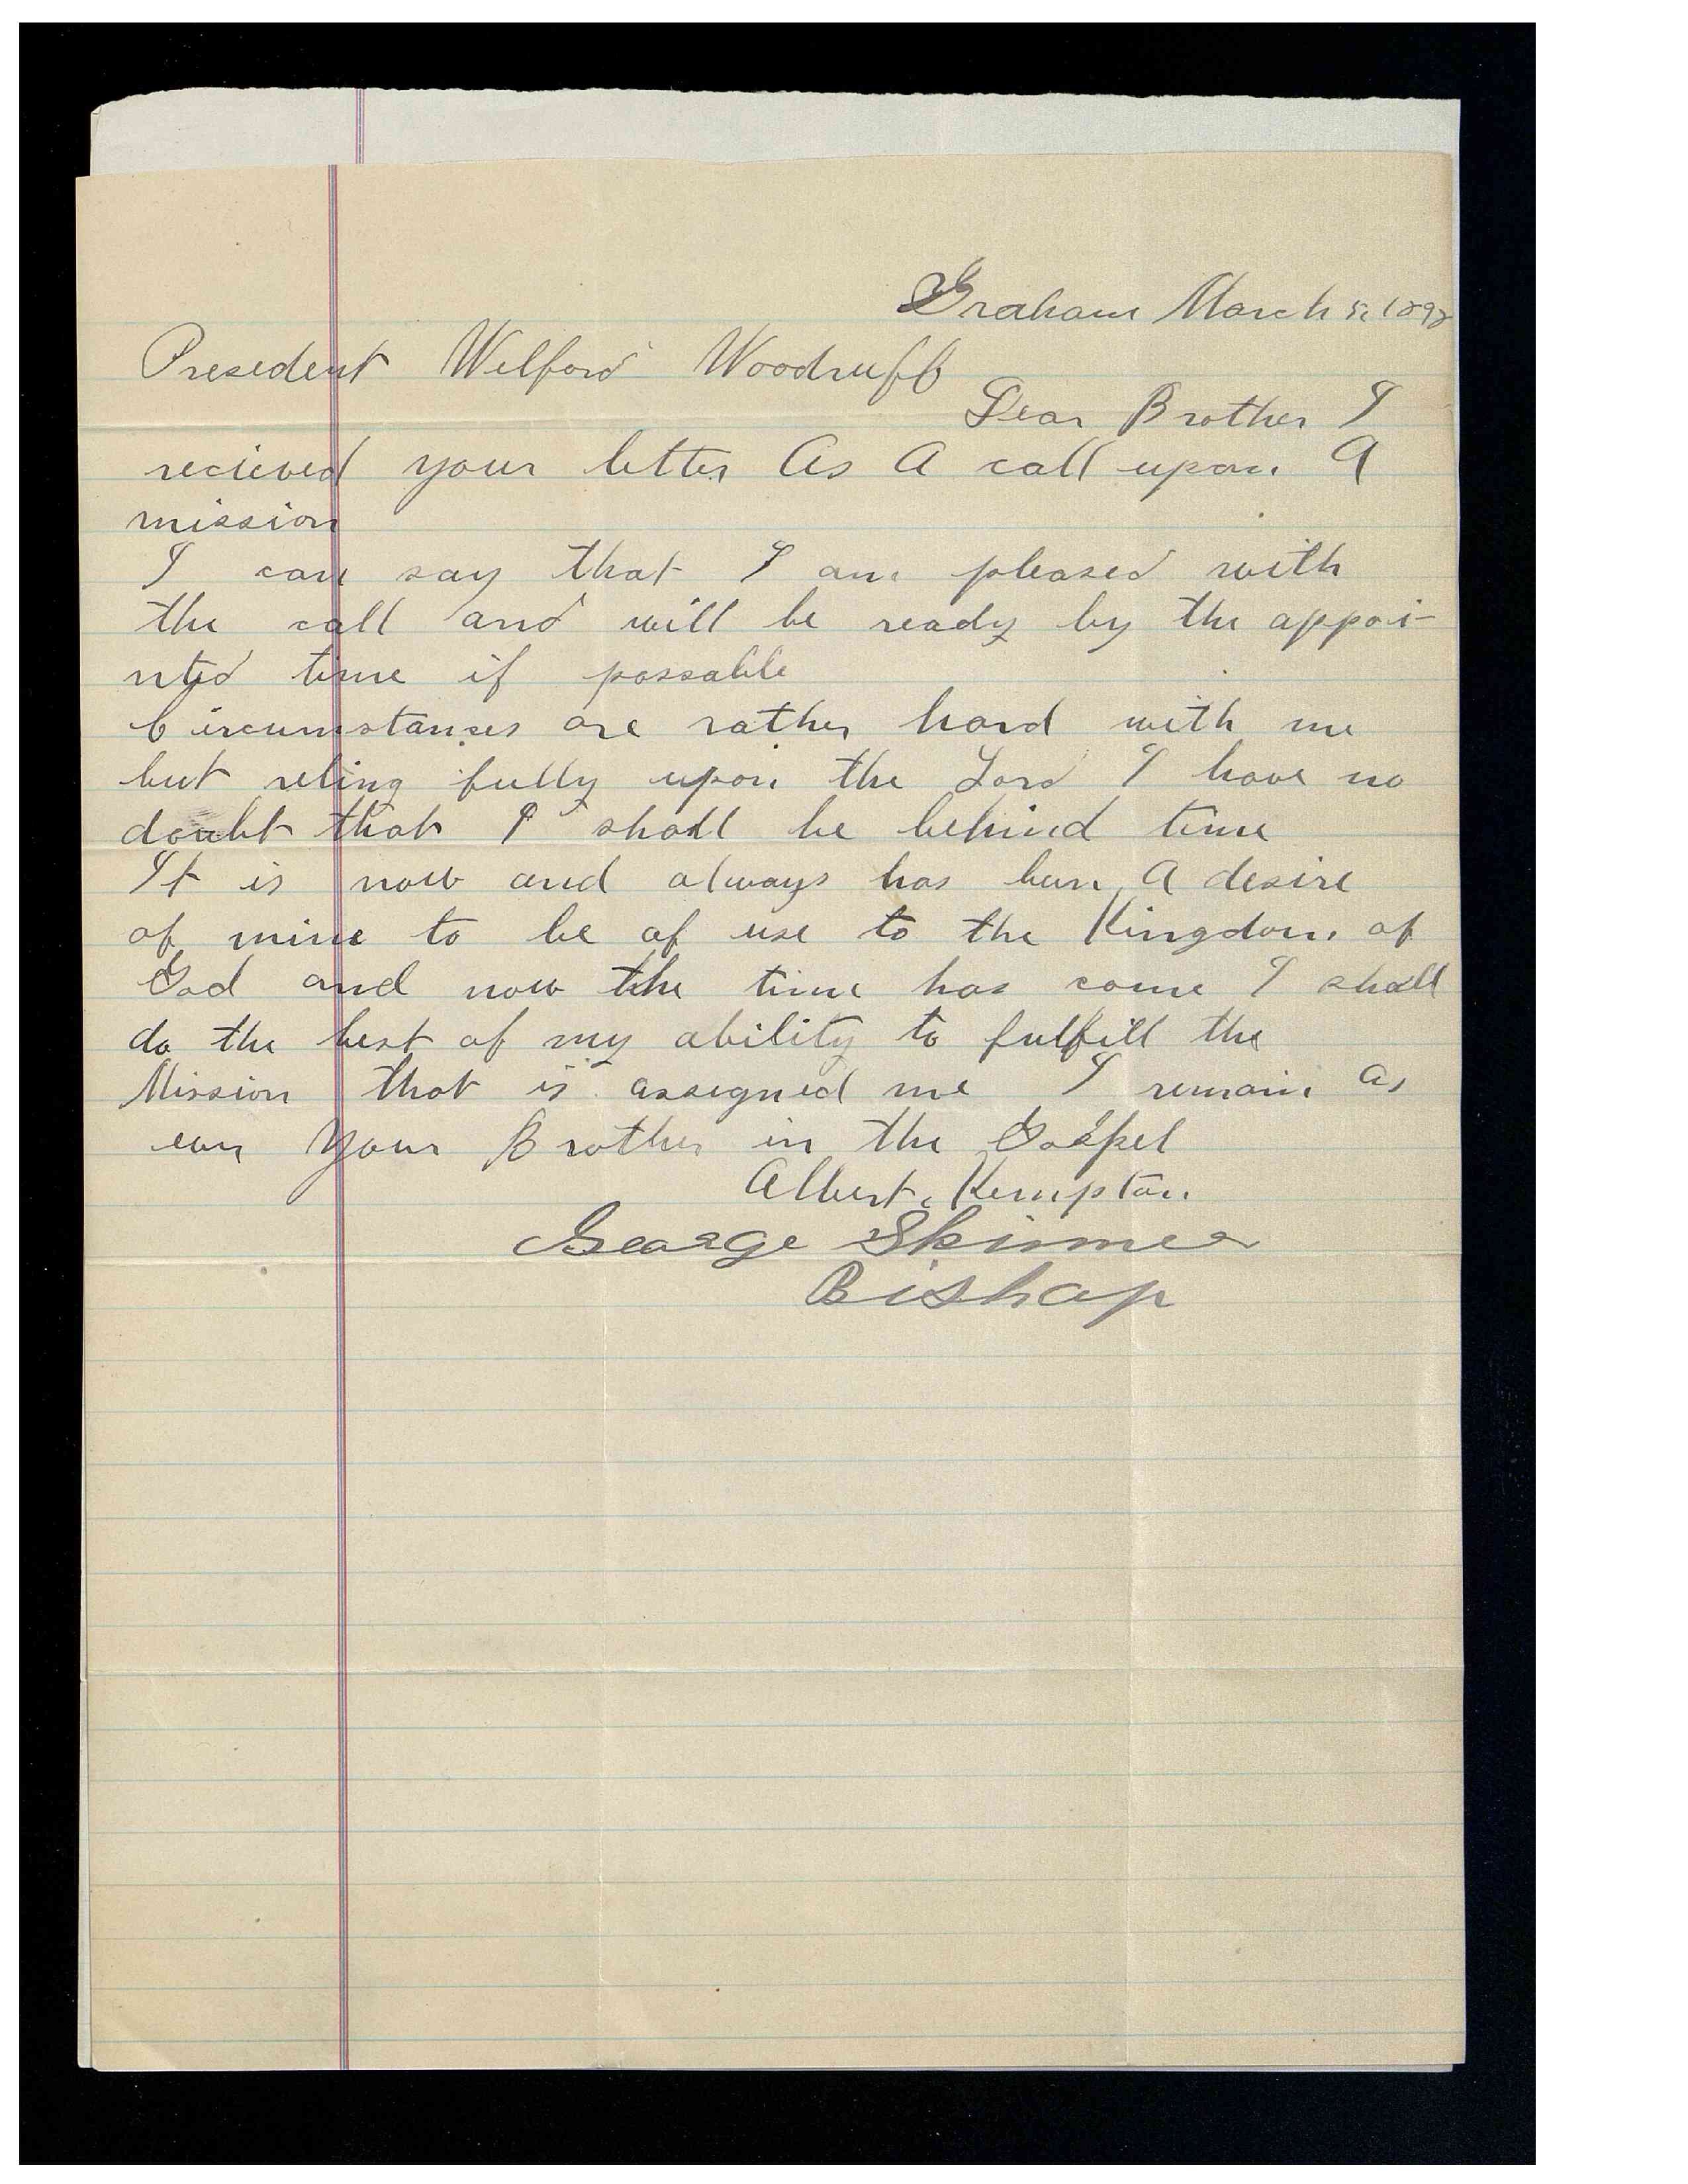 Graham March 5, 1898
Presedent Welford Woodruff
Dear Brother I
recieved your letter As A call upon A
mission
I can say that I am pleased with
the call and will be ready by the appoi-
nted time if possable
Circumstanses are rather hard with me
but reling fully upon the Lord I have no
doubt that I shall be behind time
It is now and always has been A desire
of mine to be of use to the Kingdom of
God and now the time has come I shall
do the best of my ability to fulfill the
Mission that is assegned me I remain as
ever Your Brother in the Gospel
Albert Kempton
George Skinner
Bishop